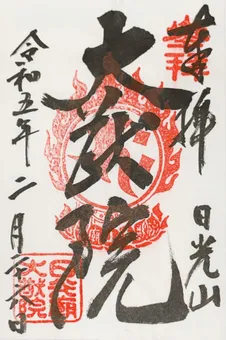 奉拝
日光山
大猷院
令和五年二月廿六日
日光廟
大猷院